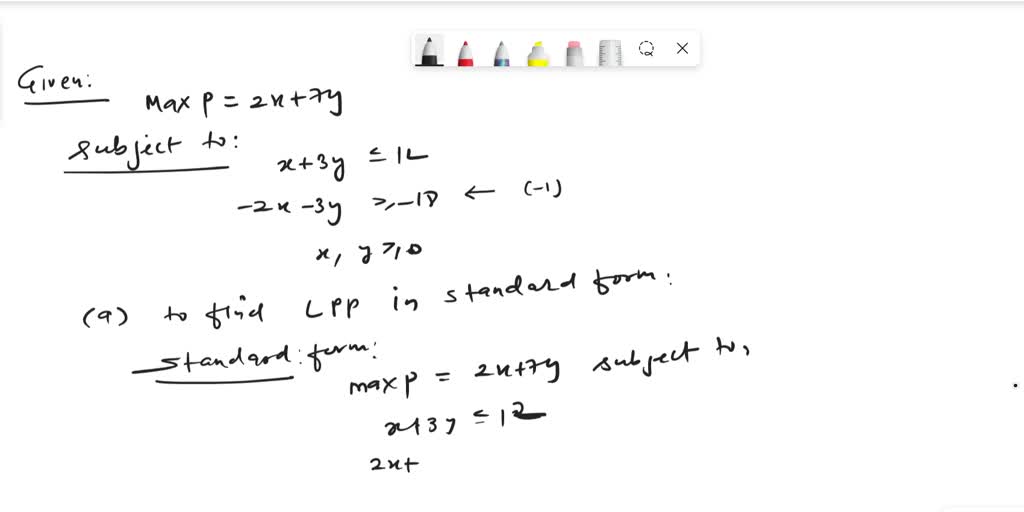 Given:
Max P = 2x+7y
subject to:
x+3y ≤ 12
-2x -3y ≥ -18 ← (-1)
x, y ≥ 0
(a) to find LPP in standard form:
Standard form:
max P = 2x+7y subject to,
x+3y ≤ 12
2x+